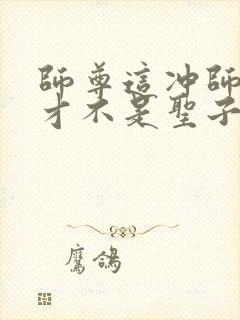 師尊這冲師
才不是聖子
鷹鴿